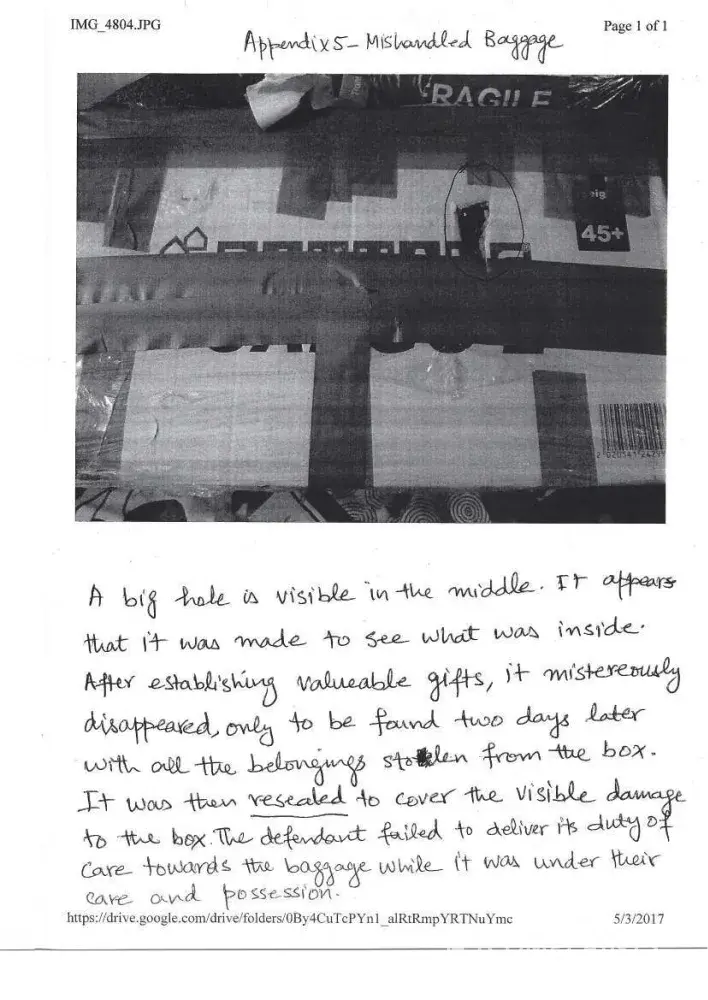 IMG_4804.JPG
Page 1 of 1
Appendix 5 - Mishandled Baggage
FRAGILE
45+
A big hole is visible in the middle. It appears
that it was made to see what was inside.
After establishing valueable gifts, it mistereously
disappeared, only to be found two days later
with all the belongings stolen from the box.
It was then resealed to cover the visible damage
to the box. The defendant failed to deliver its duty of
care towards the baggage while it was under their
care and possession.
https://drive.google.com/drive/folders/0By4CuTcPYn1_alRtRmpYRTNuYmc
5/3/2017